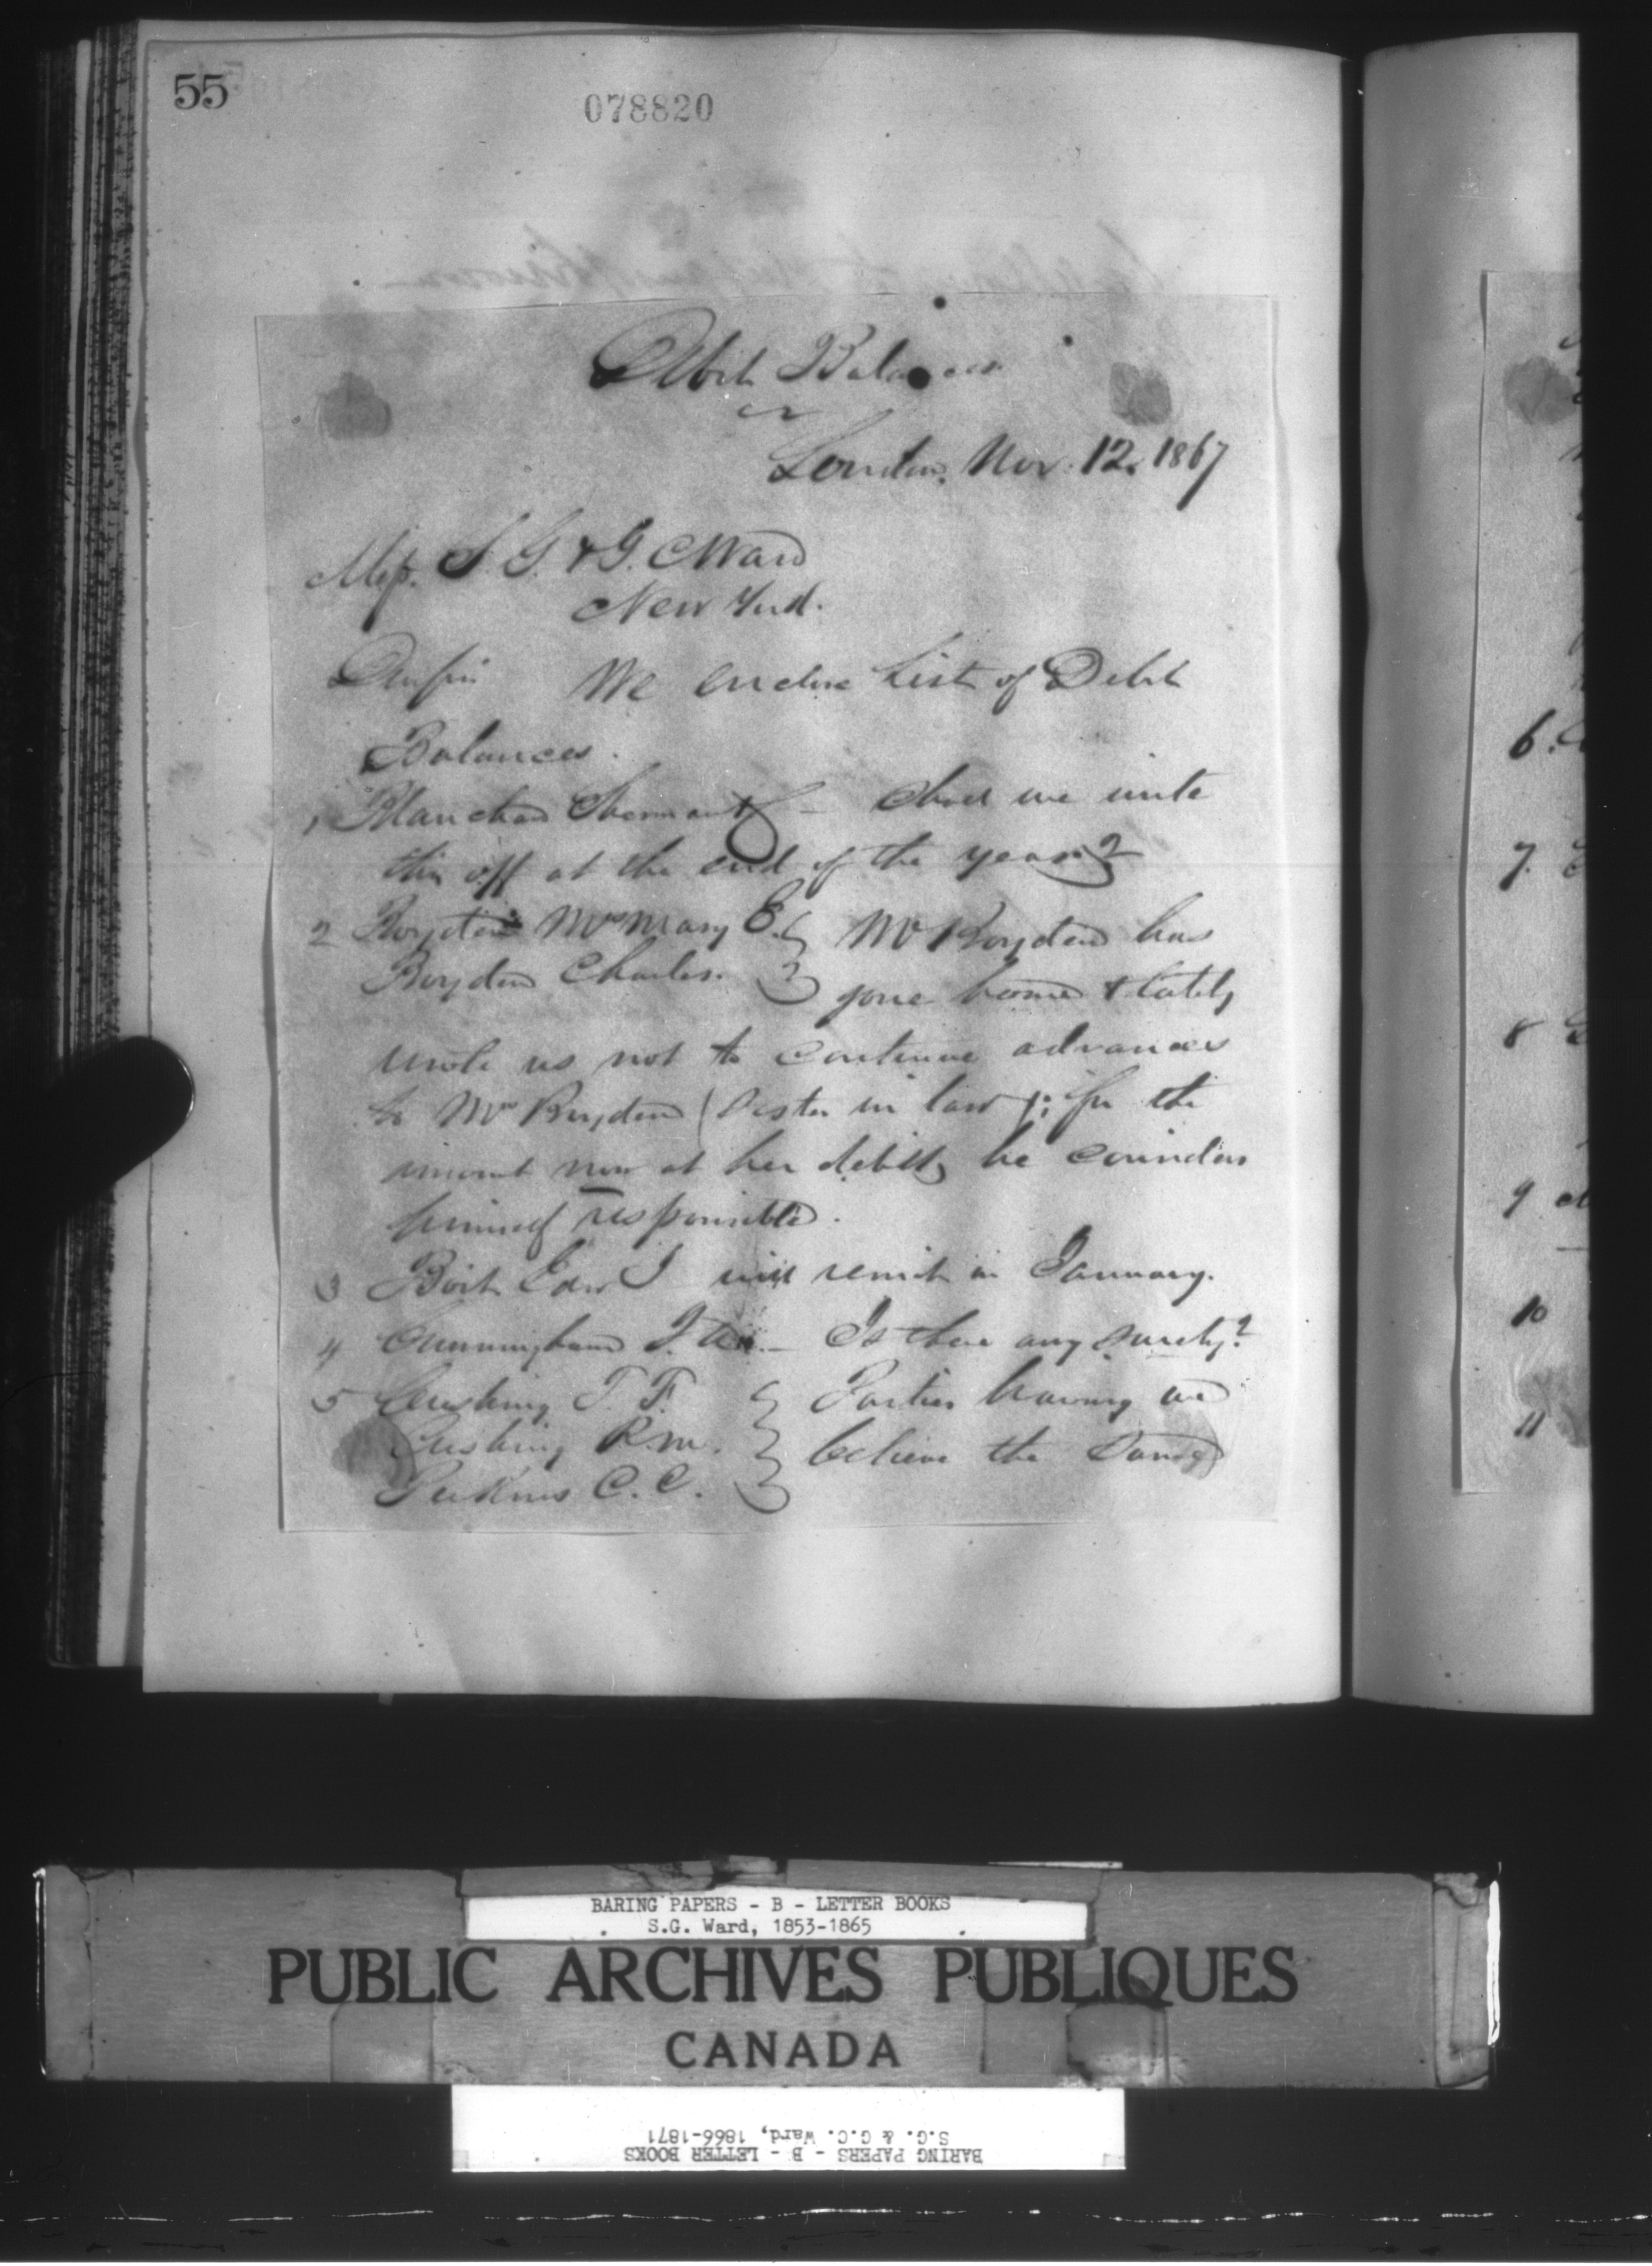 55
078820
Debit Balances
London, Nov. 12. 1867
Mess. S. G. & G. C Ward
New York.
Dear Sirs We enclose List of Debit
Balances.
1 Blanchard Sherman & Co – Shall we write
this off at the end of the year?
2 Boyden Mrs Mary E. } Mr Boyden has
Boyden Charles. } gone home & lately
wrote us not to continue advances
to Mrs Boyden (Sister in law); for the
amount now at her debit, he considers
himself responsible.
3 Boit Edwd J will remit in January.
4 Cunningham J. – Is there any surety?
5 Cushing T. F. } Parties having we
Cushing R. M. } believe the Same
Perkins C. C. }
6.
7.
8
9
10
11
BARING PAPERS - B - LETTER BOOKS
S.G. Ward, 1853-1865
PUBLIC ARCHIVES PUBLIQUES
CANADA
BARING PAPERS - B - LETTER BOOKS
S.G. & G.C. Ward, 1866-1871